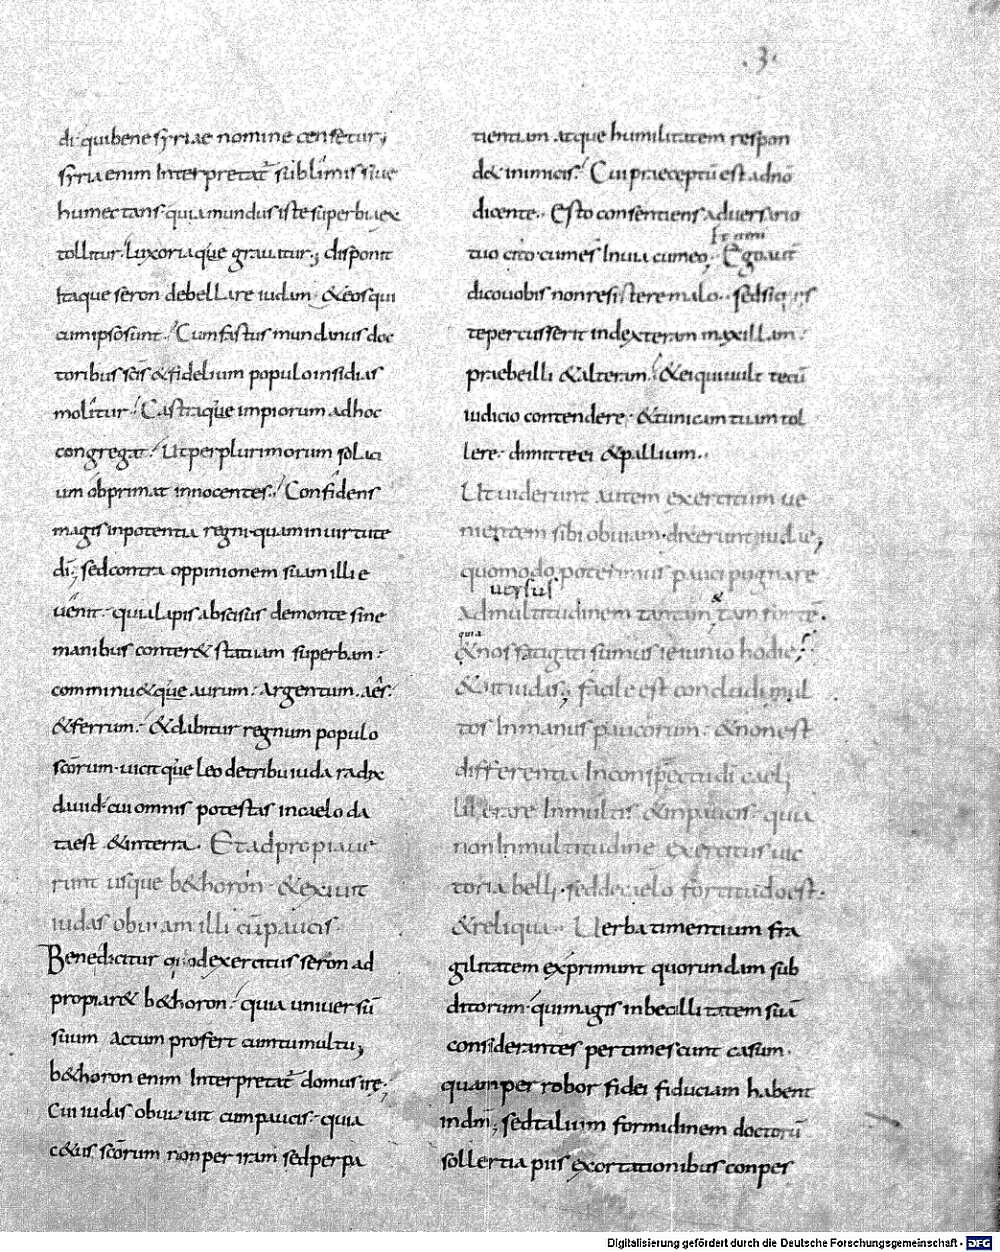 .3.
di· qui bene syriae nomine censetur;
syria enim interpretat̄ sublimis siue
humectans· quia mundus iste superbia ex
tollitur· luxoriaque grauatur; disponit
itaque seron debellare iudam· &eos qui
cum ipso sunt· Cum fastus mundanus doc
toribus scīs &fidelium populo insidias
molitur· Castraque impiorum adhoc
congregat· Ut per plurimorum solaci
um obprimat innocentes· Confidens
magis inpotentia regni· quam inuirtute
dī; sed contra oppinionem suam illi e
uenit· quia lapis abscisus demonte sine
manibus conter& statuam superbam·
comminu&que aurum· Argentum· aes·
&ferrum· &dabitur regnum populo
scōrum· uicit que leo detribu iuda radix
dauid· cui omnis potestas incaelo da
ta est &interra. Et adpropiaue
runt usque b&horon· &exiuit
iudas obuiam illi cū paucis·
Benedicitur quod exercitus seron ad
propiar& b&horon· quia uniuersū
suum actum profert cumtumultu;
b&horon enim interpretat̄ domus irę;
Cui iudas obuiauit cum paucis· quia
c&us scōrum non per iram sed per pa
tientiam atque humilitatem respon
d& inimicis· Cui praeceptū est adnō
dicente· Esto consentiens aduersario
tuo cito cum es inuia cum eo; Ego aut̄
dico uobis non resistere malo· sed si quis
te percusserit indexteram maxillam·
praebe illi &alteram· &ei qui uult tecū
iudicio contendere· &tunicam tuam tol
lere· dimitte ei &pallium·
Ut uiderunt autem exercitum ue
nientem sibi obuiam· dixerunt iudae;
quomodo poterimus pauci pugnare
uersus
Admultitudinem tantam & tam fortē·
quia
&nos fatigati sumus ieiunio hodie;
&ait iudas; facile est concludi mul
tos inmanus paucorum· &non est
differentia inconspectu dī caeli
liberare inmultis &inpaucis· quia
non inmultitudine exercitus uic
toria belli· sed decaelo fortitudo est·
&reliqua· Uerba timentium fra
gilitatem exprimunt quorundam sub
ditorum· qui magis inbecillitatem suā
considerantes pertimescunt casum·
quam per robor fidei fiduciam habent
indnī; sed talium formidinem doctorū
sollertia piis exortationibus conper
Digitalisierung gefördert durch die Deutsche Forschungsgemeinschaft - DFG